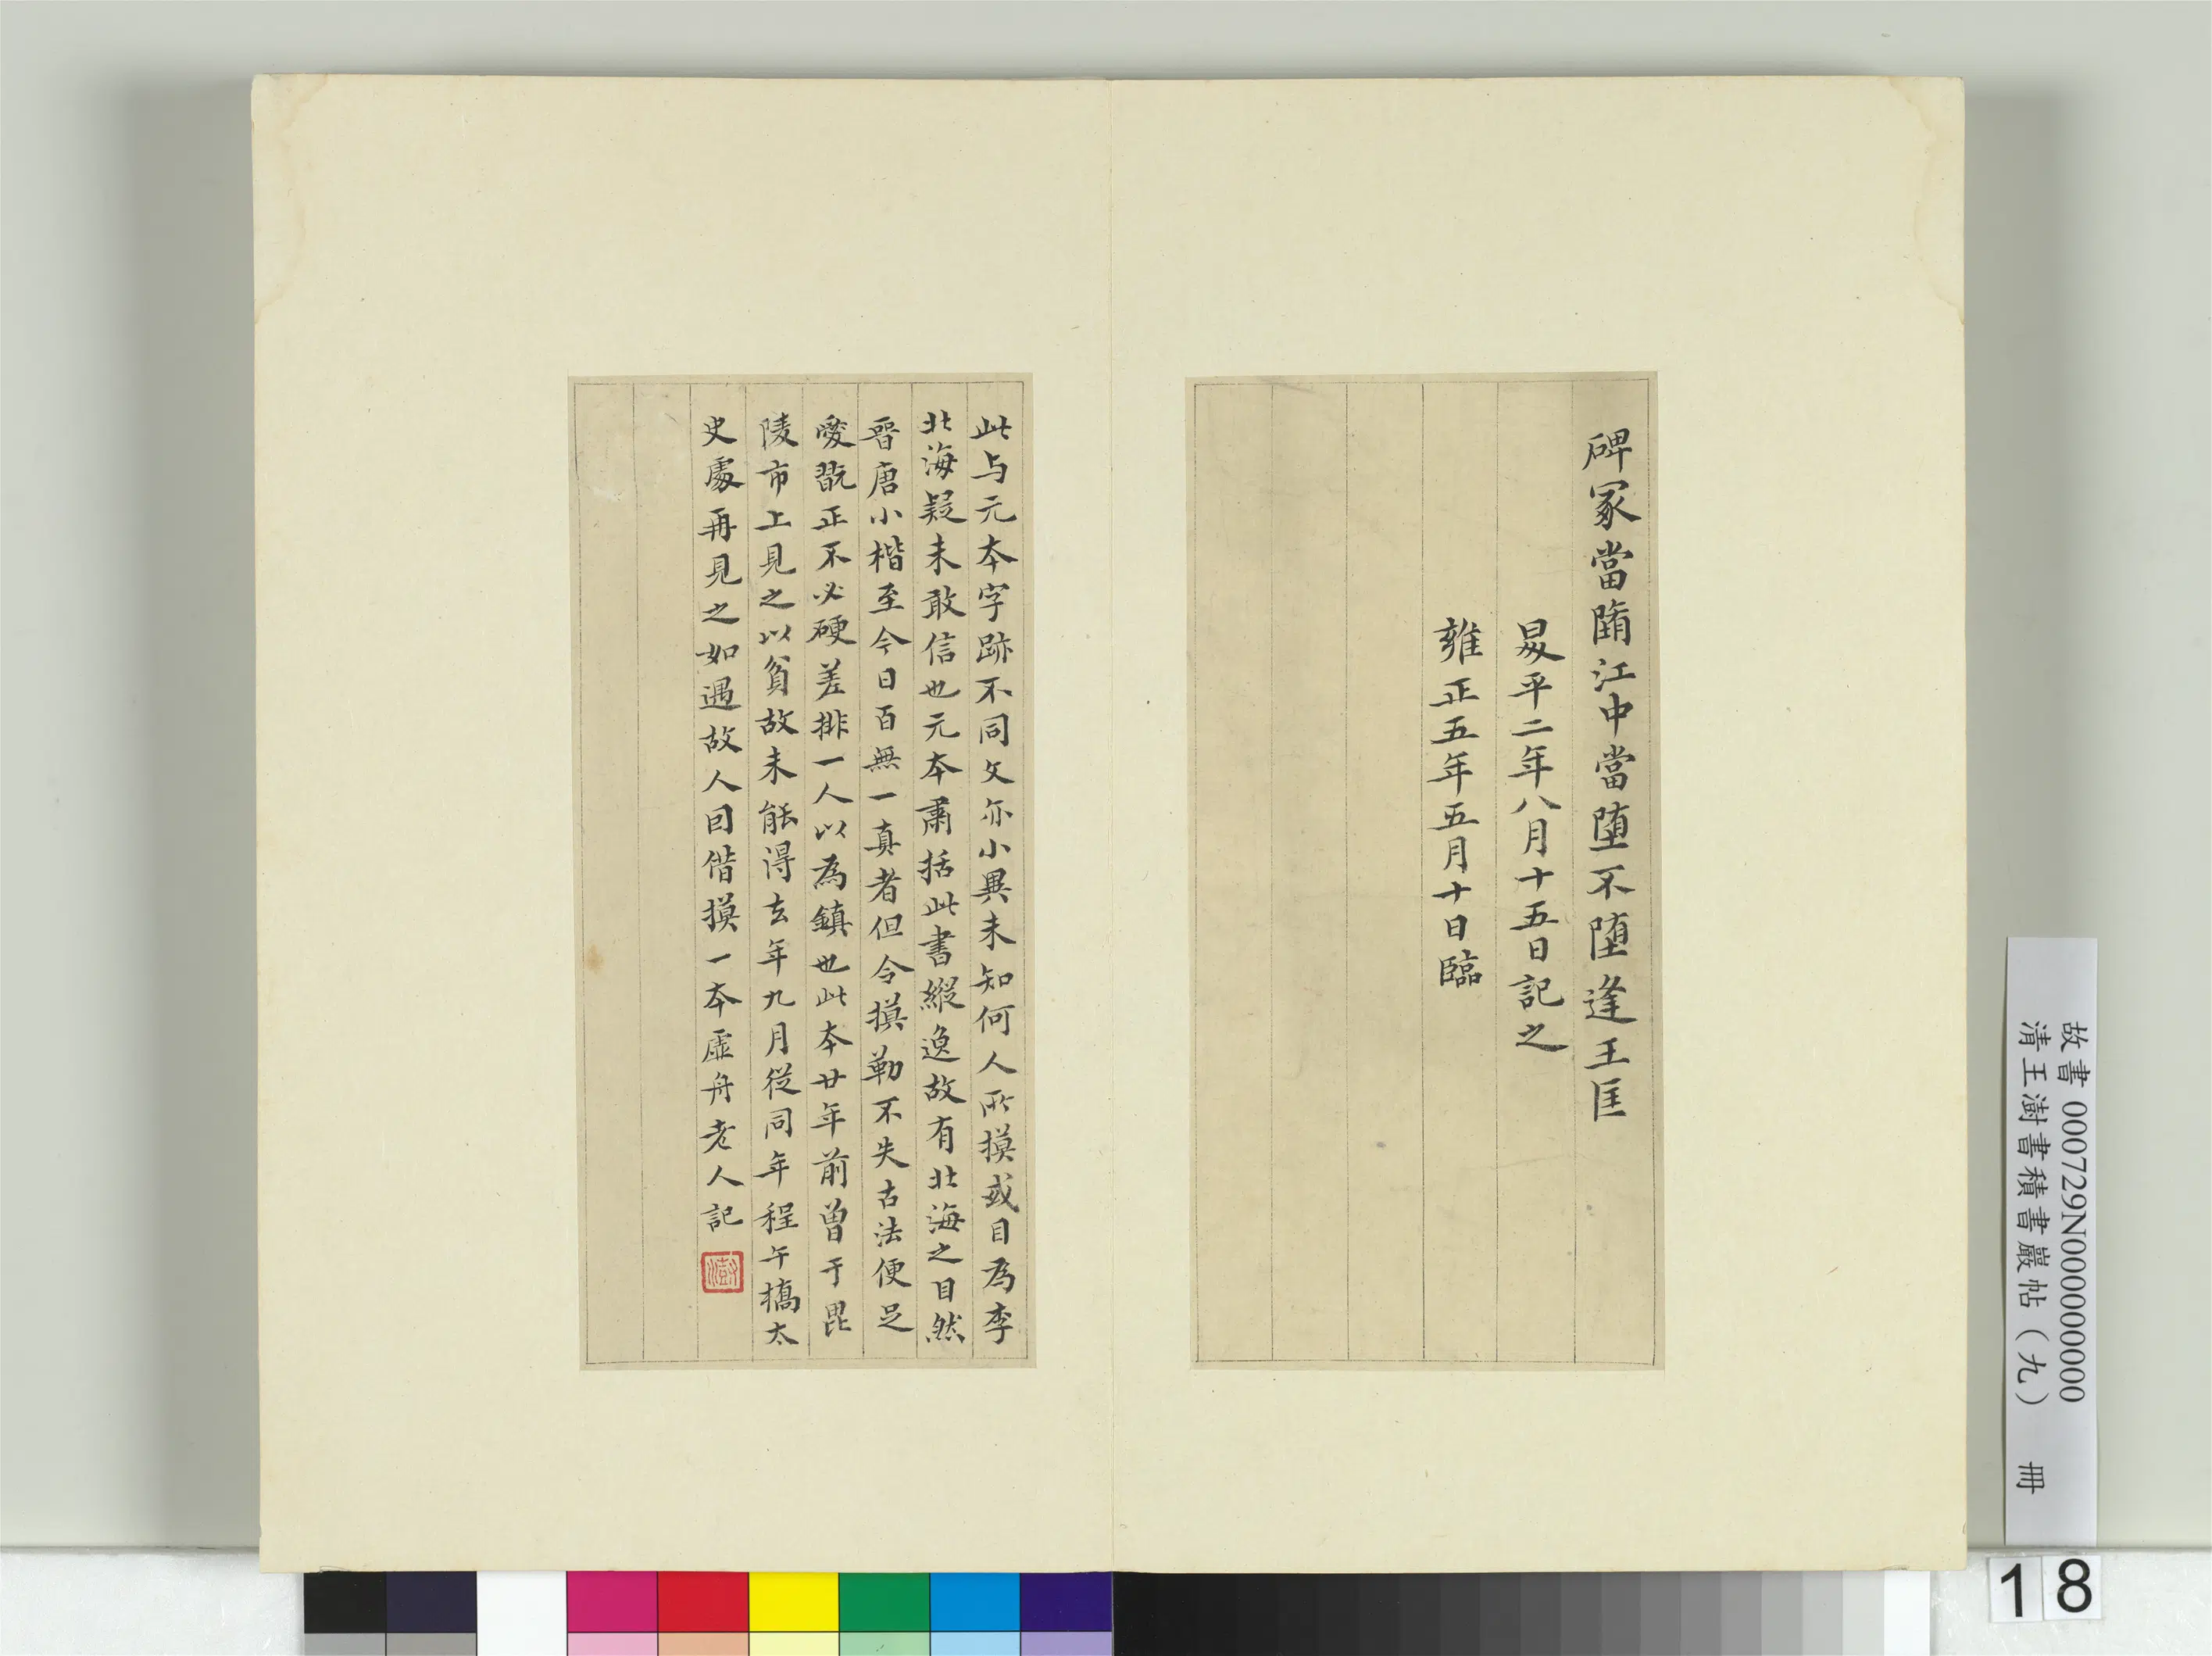 碑冢當隋江中當墮不墮逢王匡
昇平二年八月十五日記之
雍正五年五月十日臨
此与元本字跡不同文亦小異未知何人所摸或目為李
北海疑未敢信也元本肅括此書縱逸故有北海之目然
晉唐小楷至今日百無一真者但令摸勒不失古法便足
愛翫正不必硬差排一人以為鎮也此本廿年前曾于毘
陵市上見之以貧故未能得去年九月從同年程午橋太
史處再見之如遇故人因借摸一本虛舟老人記
澍
故書 000729N000000000
清王澍書積書巖帖（九） 冊
18